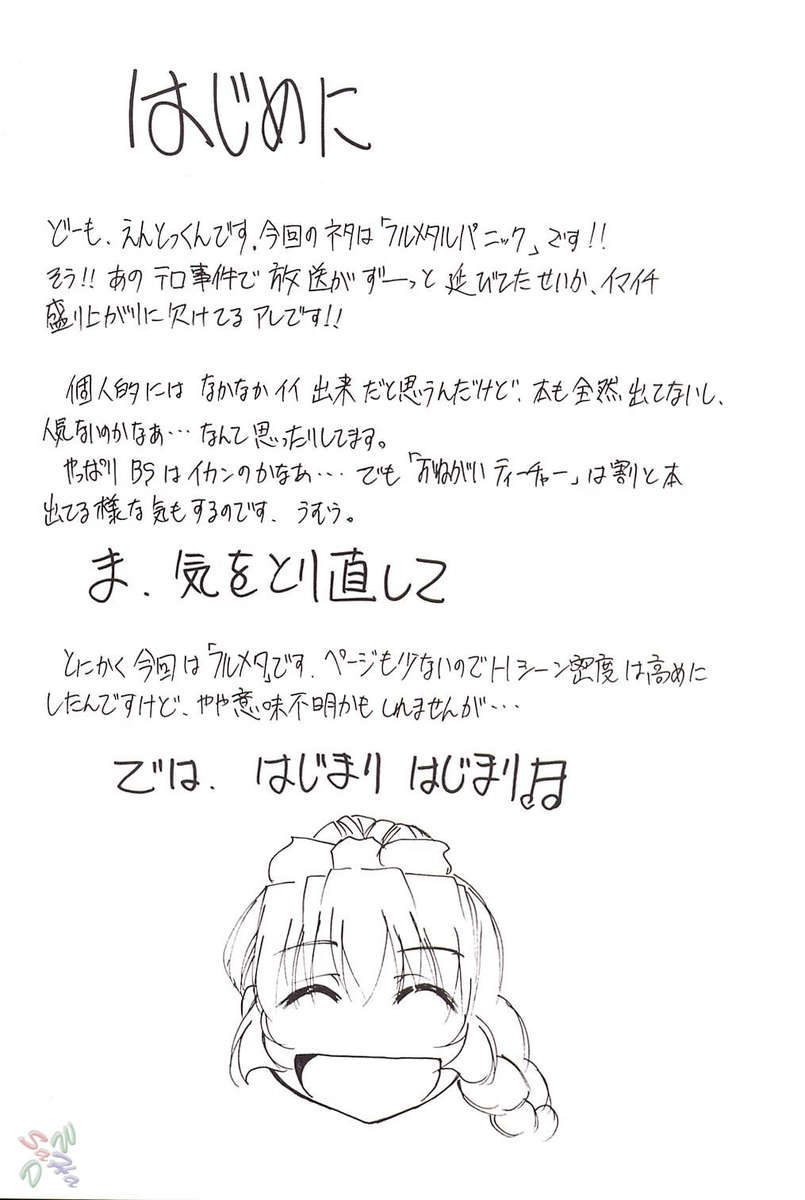 はじめに
どーも、えんとっくんです。今回のネタは「フルメタルパニック」です!!
そう!! あの テロ事件で 放送が ずーっと 延びてたせいか、イマイチ
盛り上がりに欠けてる アレです!!
個人的には なかなか イイ 出来 だと思うんだけど、本も全然 出てないし、
人気ないのかなあ… なんて 思ったりしてます。
やっぱり BSは イカンのかなあ… でも 「おねがい ティーチャー」は 割と 本
出てる様な気もするのです、うむう。
ま、気をとり直して
とにかく 今回は 「フルメタ」です、ページも少ないのでHシーン密度は高めに
したんですけど、やや意味不明かも しれませんが…
では、はじまり はじまり♫
SaHa
W
D